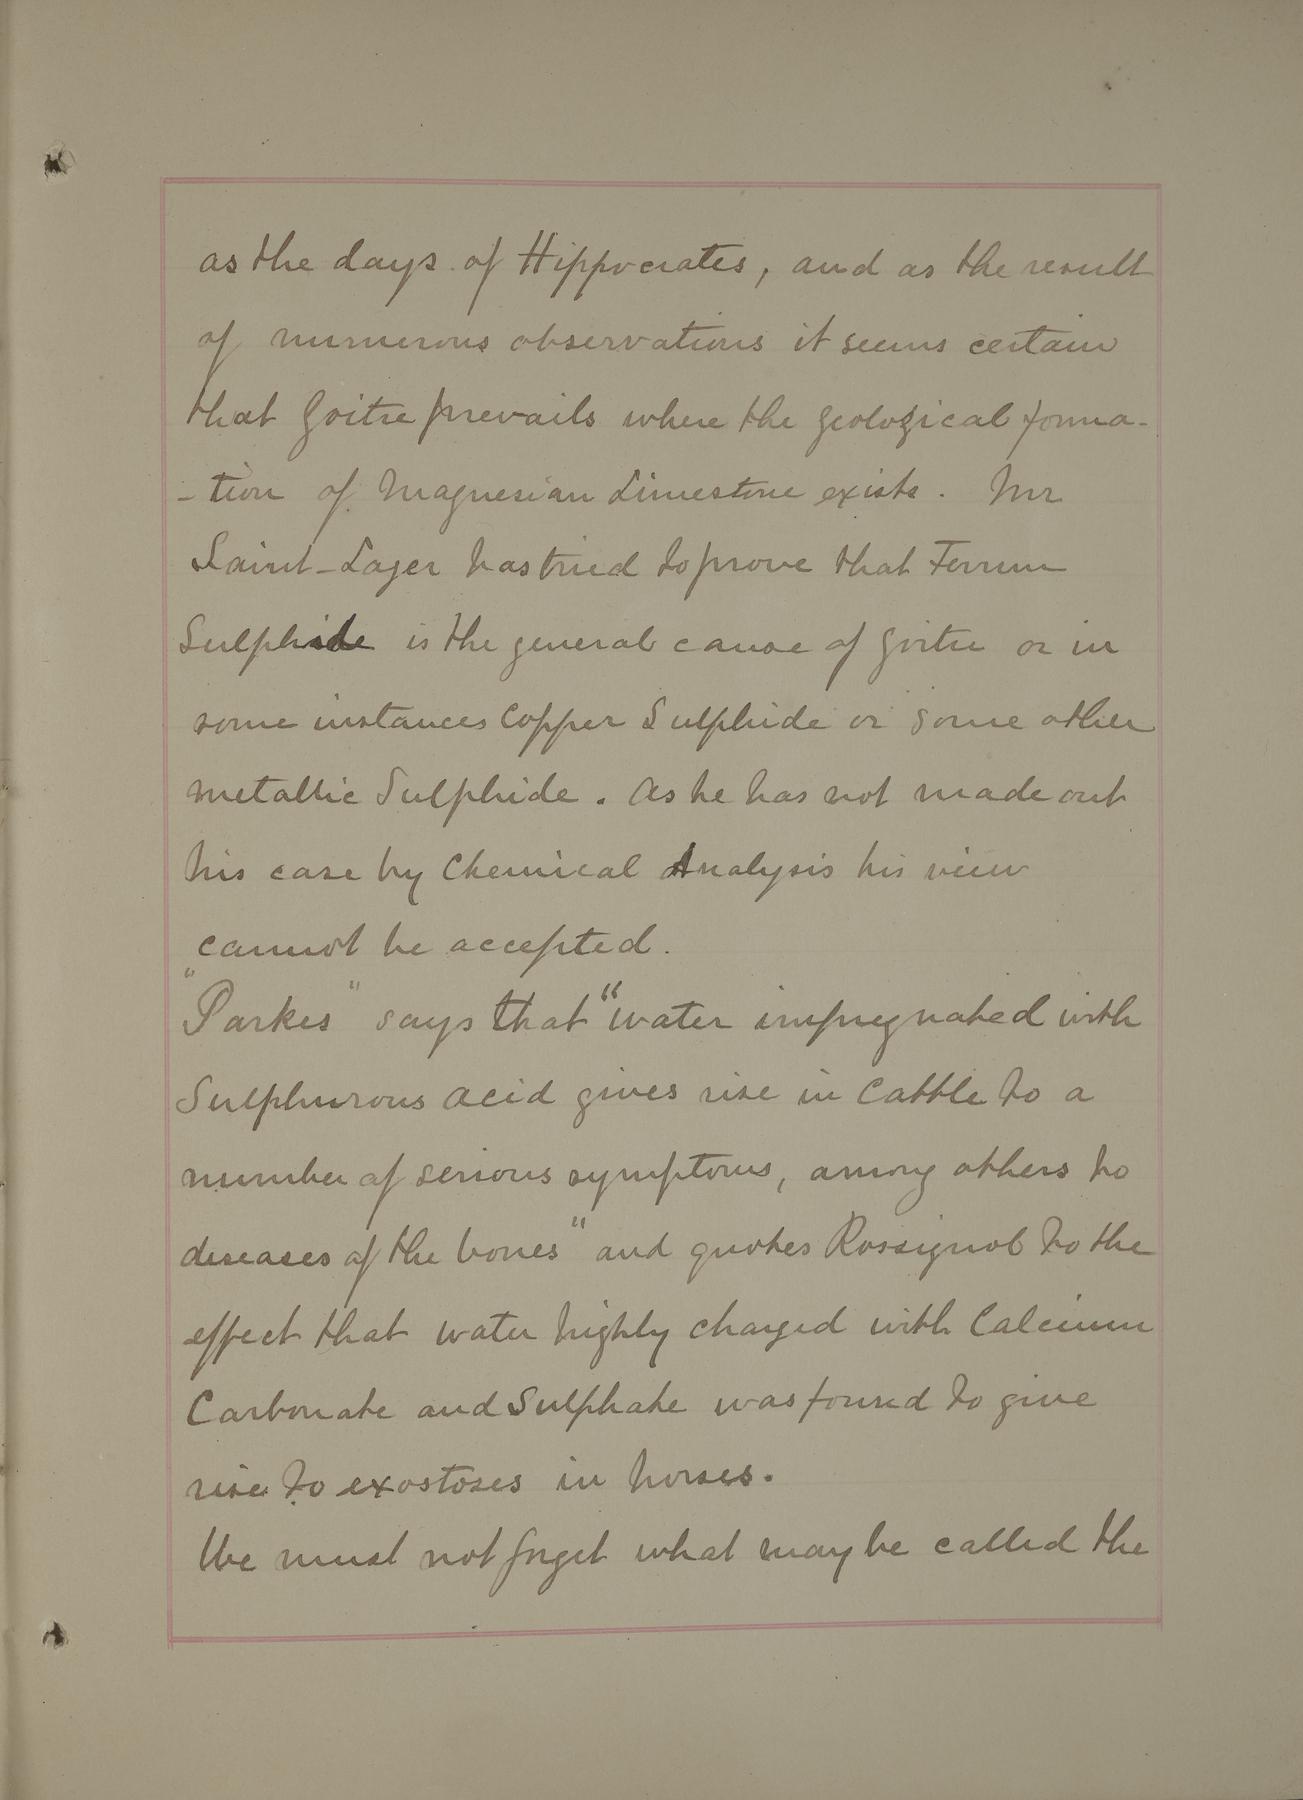 as the days of Hippocrates, and as the result
of numerous observations it seems certain
that Goitre prevails where the geological forma-
-tion of Magnesian Limestone exists. Mr
Saint-Lager has tried to prove that Ferrum
Sulphide is the general cause of goitre or in
some instances Copper Sulphide or some other
metallic Sulphide. As he has not made out
his case by Chemical Analysis his view
cannot be accepted.
"Parkes" says that "water impregnated with
Sulphurous acid gives rise in Cattle to a
number of serious symptoms, among others to
diseases of the bones" and quotes Rossignol to the
effect that water highly charged with Calcium
Carbonate and Sulphate was found to give
rise to exostoses in horses.
We must not forget what may be called the